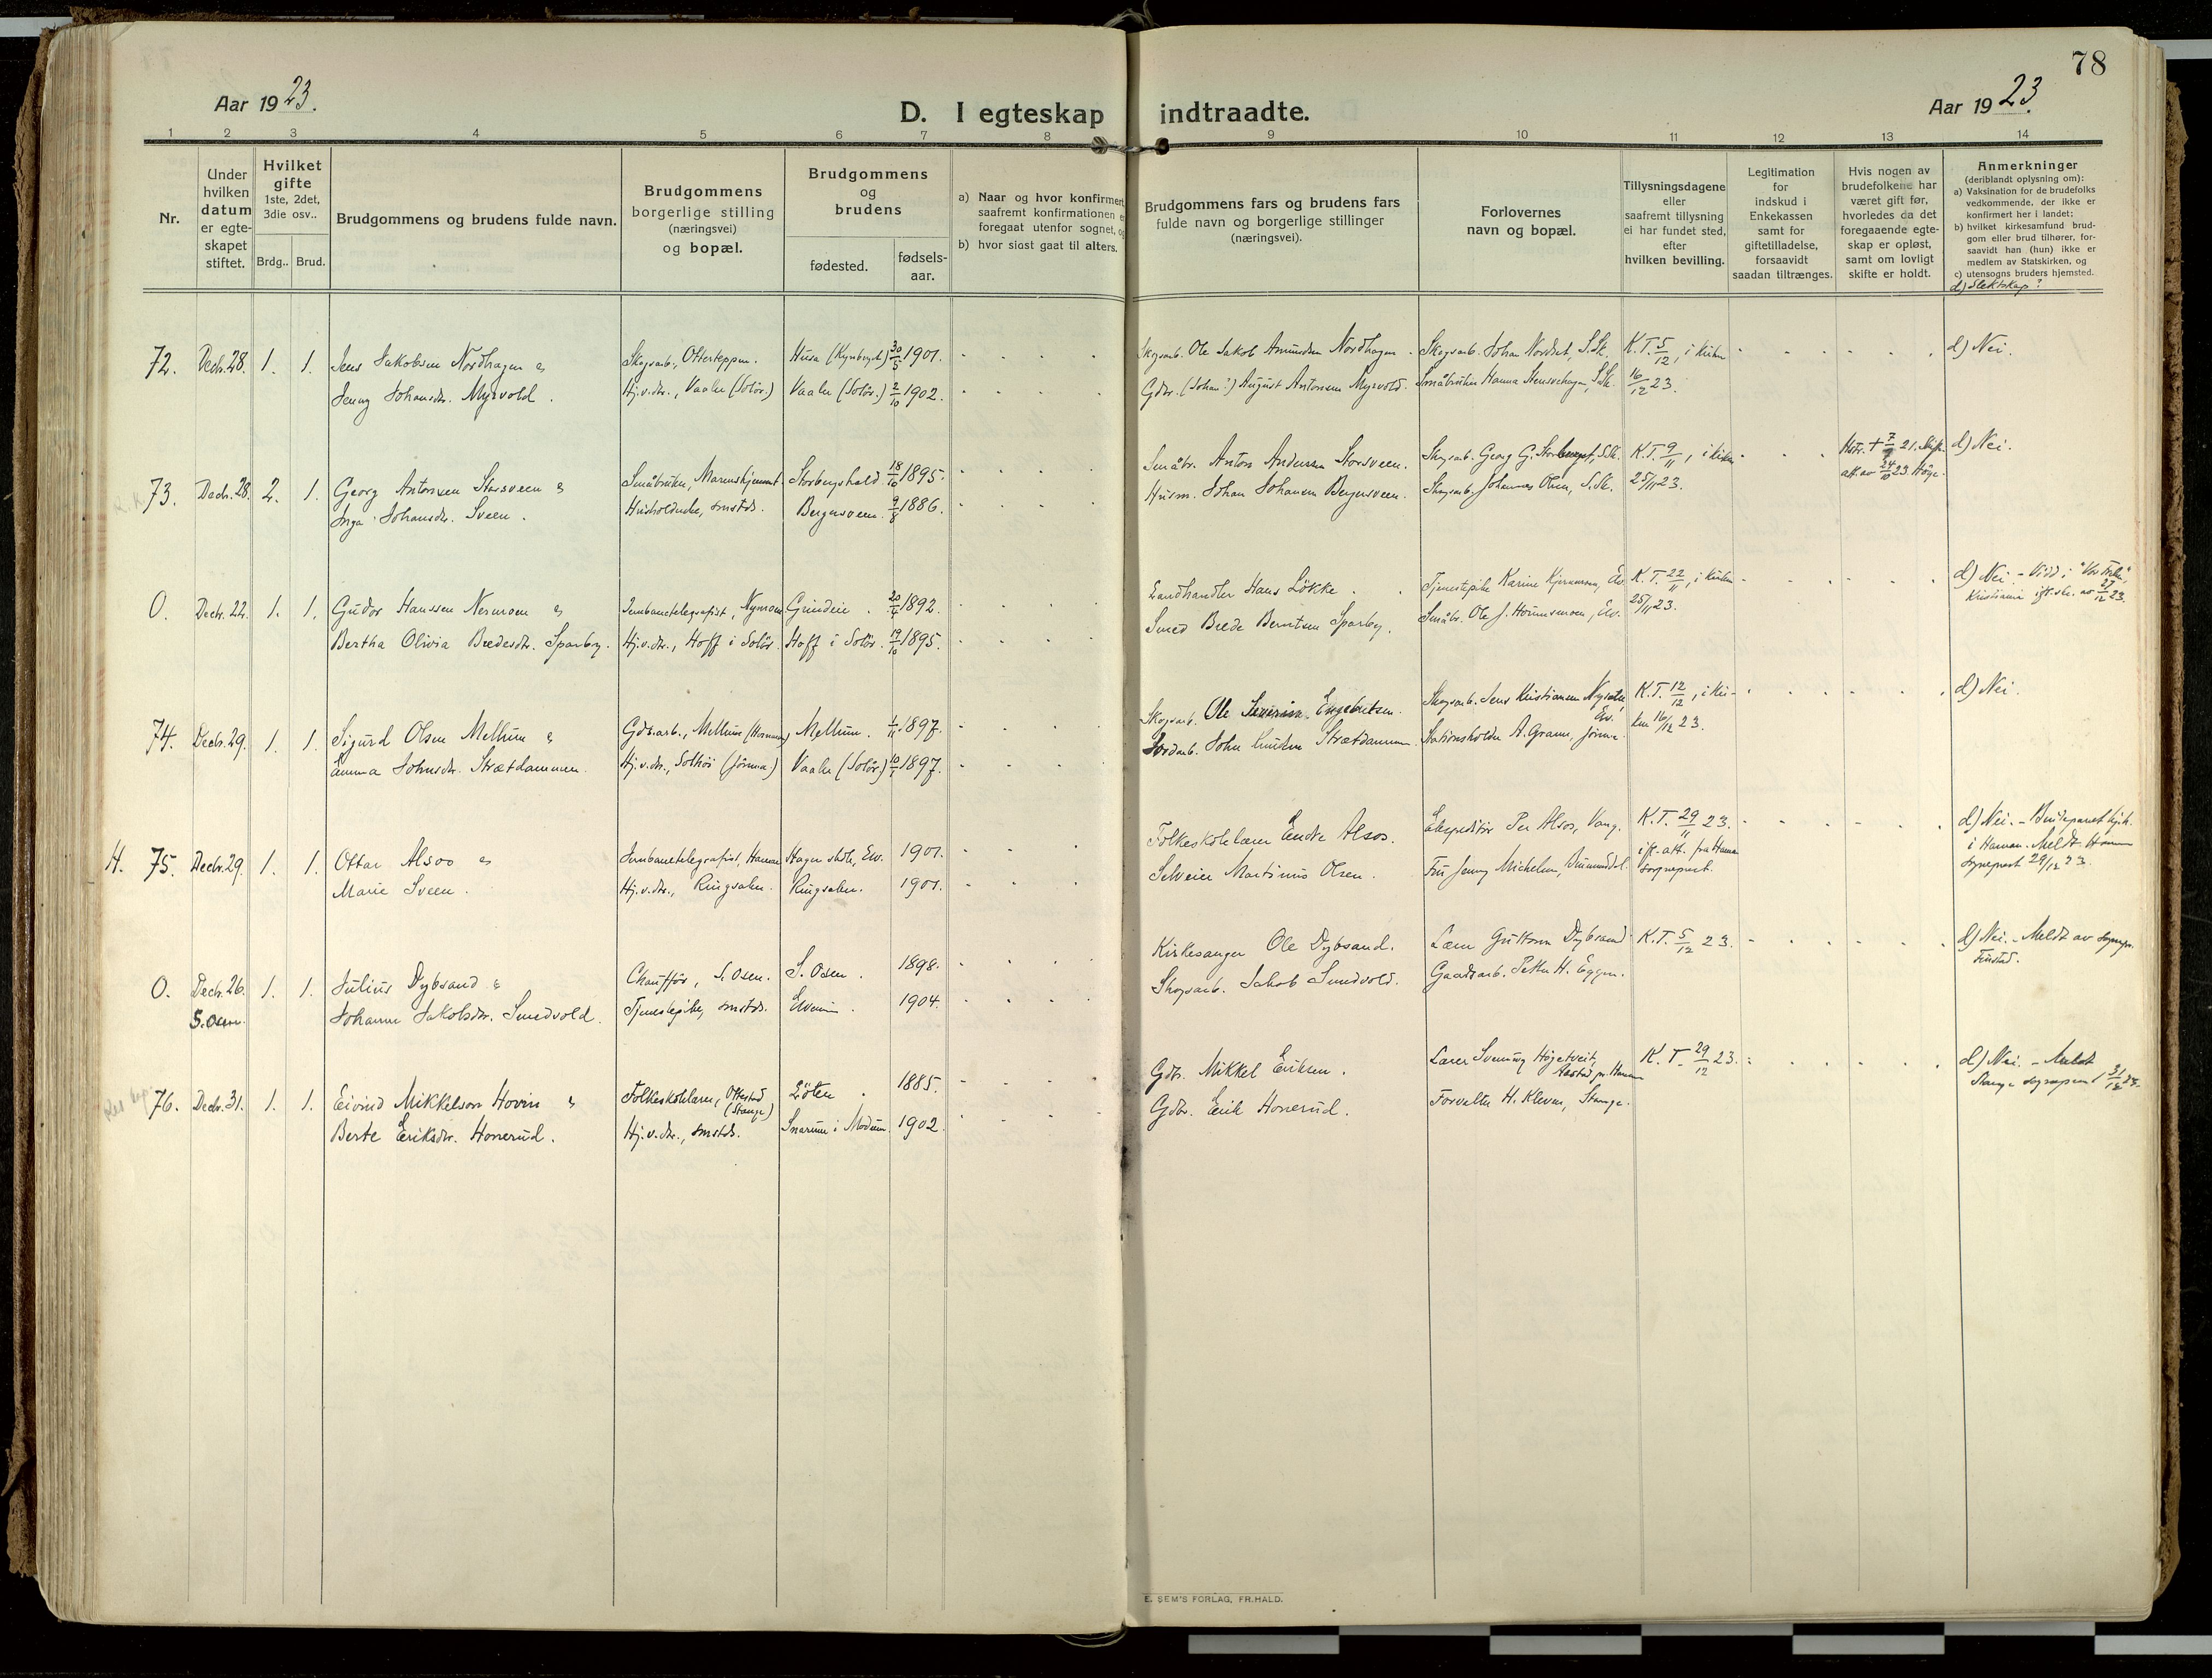 78
Aar 1923.
D. I egteskap indtraadte.
Aar 1923.
1 2 3 4 5 6 7 8 9 10 11 12 13 14
Nr.
Under hvilken datum er egte-skapet stiftet.
Hvilket gifte 1ste, 2det, 3die osv..
Brdg.. Brud.
Brudgommens og brudens fulde navn.
Brudgommens borgerlige stilling (næringsvei) og bopæl.
Brudgommens og brudens
fødested.
fødsels-aar.
a) Naar og hvor konfirmert saafremt konfirmationen foregaat utenfor sognet,
b) hvor sisst gaat til alters.
Brudgommens fars og brudens fars fulde navn og borgerlige stillinger (næringsvei).
Forlovernes navn og bopæl.
Tillysningsdagene eller saafremt tillysning ei har fundet sted, efter hvilken bevilling.
Legitimation for indskud i Enkekassen samt for giftetilladelse, forsaavidt saadan tiltrænges.
Hvis nogen av brudefolkene har været gift før, hvorledes da det foregaaende egte-skap er opløst, samt om lovligt skifte er holdt.
Anmerkninger
(deriblandt oplysning om):
a) Vaksination for de brudefolks vedkommende, der ikke er konfirmert her i landet;
b) hvilket kirkesamfund brud-gom eller brud tilhører, for-saavidt han (hun) ikke er medlem av Statskirken, og
c) utensogns bruders hjemsted.
d) Slektskap?
72. Decbr. 28. 1. 1. Jens Jakobsen Nordhagen & Skogsarb., Otterteppen. Husa (Kynberget) 30/5 1901. Skogsarb. Ole Jakob Amundsen Nordhagen. Skogsarb. Johan Nordset, S.Sk. K.T. 5/12, i kirken d) Nei.
Jenny Johansdr. Myrvold. Hj.v.dr., Vaaler (Solør.) Vaaler (Solør.) 2/10 1902. Gdbr. (Johan?) August Antonsen Myrvold. Småbruker Hanna S.Sk. 16/12 23.
73. Decbr. 28. 2. 1. Georg Antonsen Storsveen & Småbruker, Storbergshold 18/10 1895. Småbr. Anton Andersen Storsveen. Skogsarb. Georg G. Storberget, S.Sk. K.T. 9/11, i kirken d) Nei.
Inga Johansdr. Sveen. Husholderske, smstds. Bergersveen. 9/8 1886. Husm. Johan Johansen Bergersveen. Skogsarb. Johannes Olsen, S.Sk. 25/11 23.
0. Decbr. 22. 1. 1. Gudor Hanssen Nermoen & Jernbanetelegrafist, Nymoen Grindeie. 20/4 1892. Landhandler Hans Løkke. Tjenestepike Karine Elv. K.T. 22/11, i kirken d) Nei. - Viet i "Vor Frelse", Kristiania 27/12 23.
Bertha Olivia Bredesdr. Sparby. Hj.v.dr., Hoff i Solør. Hoff i Solør. 19/10 1895. Smed Brede Berntsen Sparby. Småbr. Ole J. Hornsmoen, Elv. 25/11 23.
74. Decbr. 29. 1. 1. Sigurd Olsen Mellum & Gdsarb., Mellum Mellum. 1/11 1897. Skogsarb. Ole Severin Engebretsen. Skogsarb. Jens Kristiansen Nysæter, Elv. K.T. 12/12, i kir- d) Nei.
Emma Johnsdr. Strætdammen. Hj.v.dr., Solhøi (Jømna) Vaaler (Solør.) 10/1 1897. Jordarb. John Strætdammen. Stationsholder A. Gram, Jømna. ken 16/12 23.
H. 75. Decbr. 29. 1. 1. Ottar Alsos & Jernbanetelegrafist, Hamar Hagen skole, Elv. 1901. Folkeskolelærer Endre Alsos. Ekspeditør Per Alsos, Vang. K.T. 29/11 23. d) Nei. - Brudeparret
Marie Sveen. Hj.v.dr., Ringsaker. Ringsaker. 1901. Selveier Martinus Olsen. Fru Jenny Michelsen, Brumunddal. ift. att. fra Hamar sogneprest. i Hamar. Meldt Hamar sogneprest 29/12 23.
0. Decbr. 26. 1. 1. Julius Dybsand & Chauffør, S. Osen. S. Osen. 1898. Kirkesanger Ole Dybsand. Lærer Guttorm Dybsand K.T. 5/12 23. d) Nei. - Meldt av sognepr.
S. Osen. Johanne Jakobsdr. Smedvold. Tjenestepike, smstds. Elverum. 1904. Skogsarb. Jakob Smedvold. Gaardsarb. Petter H. Eggen. Finstad.
76. Decbr. 31. 1. 1. Eivind Mikkelson Hovin & Folkeskolelærer, Ottestad (Stange) Løten 1885. Gdbr. Mikkel Eriksen. Lærer Sveinung Høgetveit, K.T. 29/12 23. d) Nei. - Meldt Stange sogneprest 31/12 23.
Berte Eriksdr. Honerud. Hj.v.dr., smstds. Snarum i Modum. 1902. Gdbr. Erik Honerud. Forvalter H. Klever, Stange.
E. SEM'S FORLAG, FR.HALD.